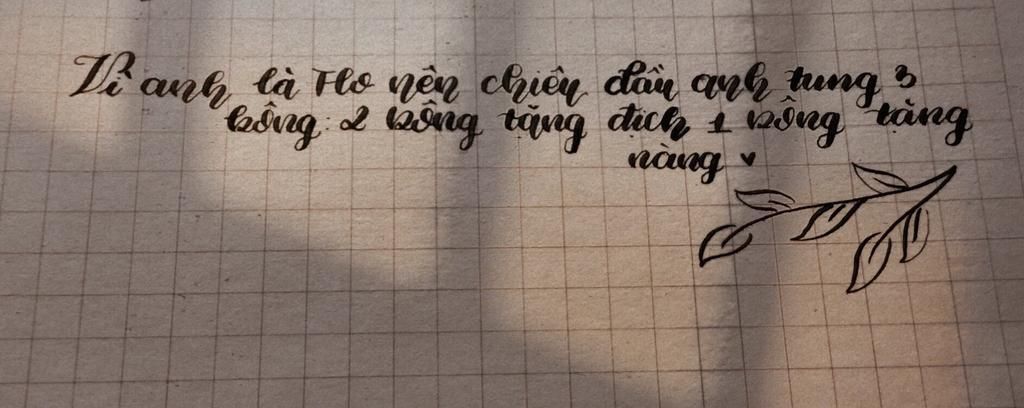 Vì anh là Flo nên chiêu đầu anh tung 3
bông: 2 bông tặng địch 1 bông tặng
nàng v